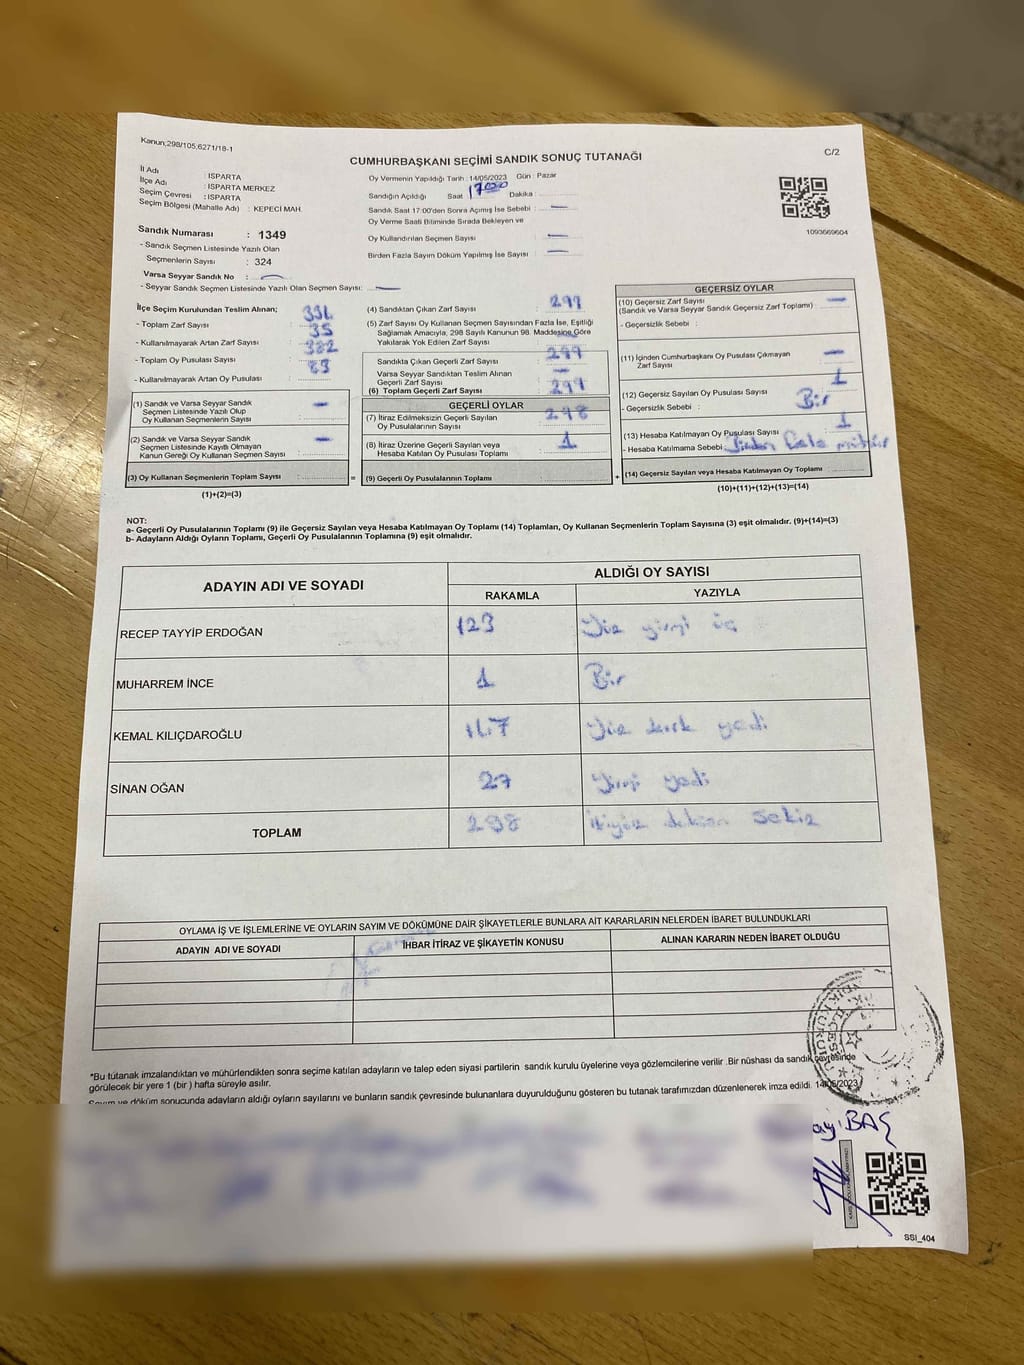 Kanun;298/105,6271/18-1
C/2
CUMHURBAŞKANI SEÇİMİ SANDIK SONUÇ TUTANAĞI
İl Adı : ISPARTA
İlçe Adı : ISPARTA MERKEZ
Seçim Çevresi : ISPARTA
Seçim Bölgesi (Mahalle Adı) : KEPECİ MAH.
Sandık Numarası : 1349
- Sandık Seçmen Listesinde Yazılı Olan
Seçmenlerin Sayısı : 324
Varsa Seyyar Sandık No :
- Seyyar Sandık Seçmen Listesinde Yazılı Olan Seçmen Sayısı:
Oy Vermenin Yapıldığı Tarih : 14/05/2023 Gün : Pazar
Sandığın Açıldığı Saat 17:00 Dakika :
Sandık Saat 17:00'den Sonra Açımış İse Sebebi :
Oy Verme Saati Bitiminde Sırada Bekleyen ve
Oy Kullandırılan Seçmen Sayısı :
Birden Fazla Sayım Döküm Yapılmış İse Sayısı :
1093669604
İlçe Seçim Kurulundan Teslim Alınan;
- Toplam Zarf Sayısı :
- Kullanılmayarak Artan Zarf Sayısı : 35
- Toplam Oy Pusulası Sayısı : 382
- Kullanılmayarak Artan Oy Pusulası : 83
(1) Sandık ve Varsa Seyyar Sandık
Seçmen Listesinde Yazılı Olup
Oy Kullanan Seçmenlerin Sayısı :
(2) Sandık ve Varsa Seyyar Sandık
Seçmen Listesinde Kayıtlı Olmayan
Kanun Gereği Oy Kullanan Seçmen Sayısı :
(3) Oy Kullanan Seçmenlerin Toplam Sayısı :
(1)+(2)=(3)
(4) Sandıktan Çıkan Zarf Sayısı : 299
(5) Zarf Sayısı Oy Kullanan Seçmen Sayısından Fazla İse, Eşitliği
Sağlamak Amacıyla, 298 Sayılı Kanunun 98. Maddesine Göre
Yakılarak Yok Edilen Zarf Sayısı :
Sandıkta Çıkan Geçerli Zarf Sayısı : 299
Varsa Seyyar Sandıktan Teslim Alınan
Geçerli Zarf Sayısı :
(6) Toplam Geçerli Zarf Sayısı : 299
GEÇERLİ OYLAR
(7) İtiraz Edilmeksizin Geçerli Sayılan
Oy Pusulalarının Sayısı : 298
(8) İtiraz Üzerine Geçerli Sayılan veya
Hesaba Katılan Oy Pusulası Toplamı : 1
= (9) Geçerli Oy Pusulalarının Toplamı :
GEÇERSİZ OYLAR
(10) Geçersiz Zarf Sayısı
(Sandık ve Varsa Seyyar Sandık Geçersiz Zarf Toplamı) :
- Geçersizlik Sebebi :
(11) İçinden Cumhurbaşkanı Oy Pusulası Çıkmayan
Zarf Sayısı :
(12) Geçersiz Sayılan Oy Pusulası Sayısı : 1
- Geçersizlik Sebebi : Bir
(13) Hesaba Katılmayan Oy Pusulası Sayısı : 1
- Hesaba Katılmama Sebebi : fazla mühür
+ (14) Geçersiz Sayılan veya Hesaba Katılmayan Oy Toplamı :
(10)+(11)+(12)+(13)=(14)
NOT:
a- Geçerli Oy Pusulalarının Toplamı (9) ile Geçersiz Sayılan veya Hesaba Katılmayan Oy Toplamı (14) Toplamları, Oy Kullanan Seçmenlerin Toplam Sayısına (3) eşit olmalıdır. (9)+(14)=(3)
b- Adayların Aldığı Oyların Toplamı, Geçerli Oy Pusulalarının Toplamına (9) eşit olmalıdır.
ADAYIN ADI VE SOYADI
ALDIĞI OY SAYISI
RAKAMLA YAZIYLA
RECEP TAYYİP ERDOĞAN 123 Yüz yirmi üç
MUHARREM İNCE 1 Bir
KEMAL KILIÇDAROĞLU 147 Yüz kırk yedi
SİNAN OĞAN 27 Yirmi yedi
TOPLAM 298 ikiyüz doksan sekiz
OYLAMA İŞ VE İŞLEMLERİNE VE OYLARIN SAYIM VE DÖKÜMÜNE DAİR ŞİKAYETLERLE BUNLARA AİT KARARLARIN NELERDEN İBARET BULUNDUKLARI
ADAYIN ADI VE SOYADI
İHBAR İTİRAZ VE ŞİKAYETİN KONUSU
ALINAN KARARIN NEDEN İBARET OLDUĞU
*Bu tutanak imzalandıktan ve mühürlendikten sonra seçime katılan adayların ve talep eden siyasi partilerin sandık kurulu üyelerine veya gözlemcilerine verilir .Bir nüshası da sandık çevresinde
görülecek bir yere 1 (bir ) hafta süreyle asılır.
Sayım ve döküm sonucunda adayların aldığı oyların sayılarını ve bunların sandık çevresinde bulunanlara duyurulduğunu gösteren bu tutanak tarafımızdan düzenlenerek imza edildi. 14/05/2023
BAŞ
SSI_404